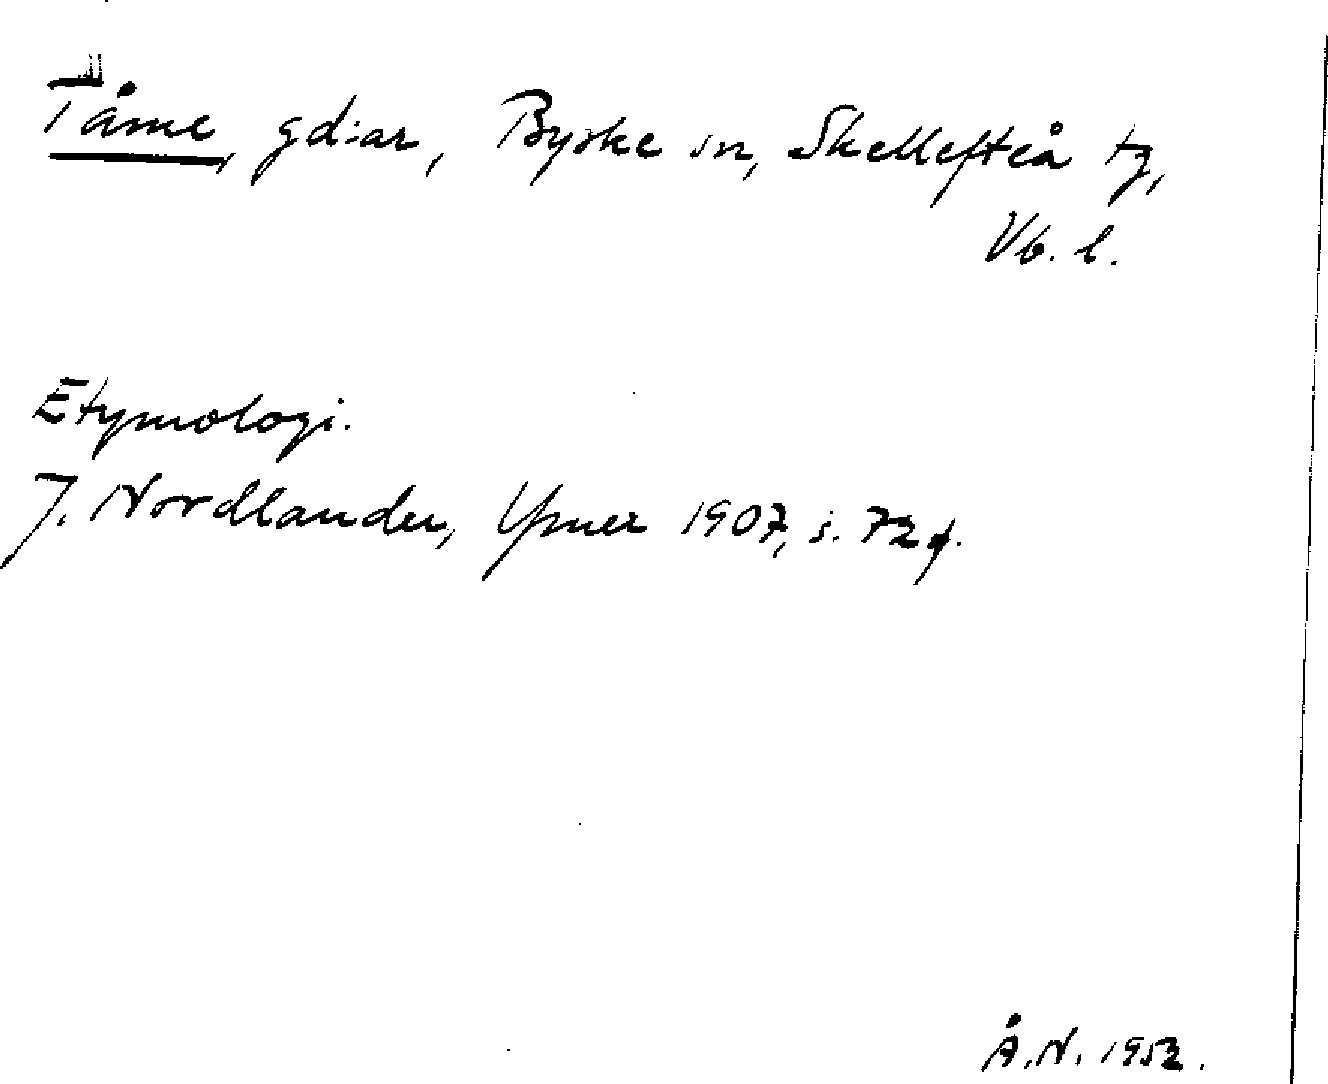 Tåme, gd:ar, Byske sn, Skellefteå tg,
Vb. l.
Etymologi.
J. Nordlander, Ymer 1907, s. 72 f.
Å.N. 1952.